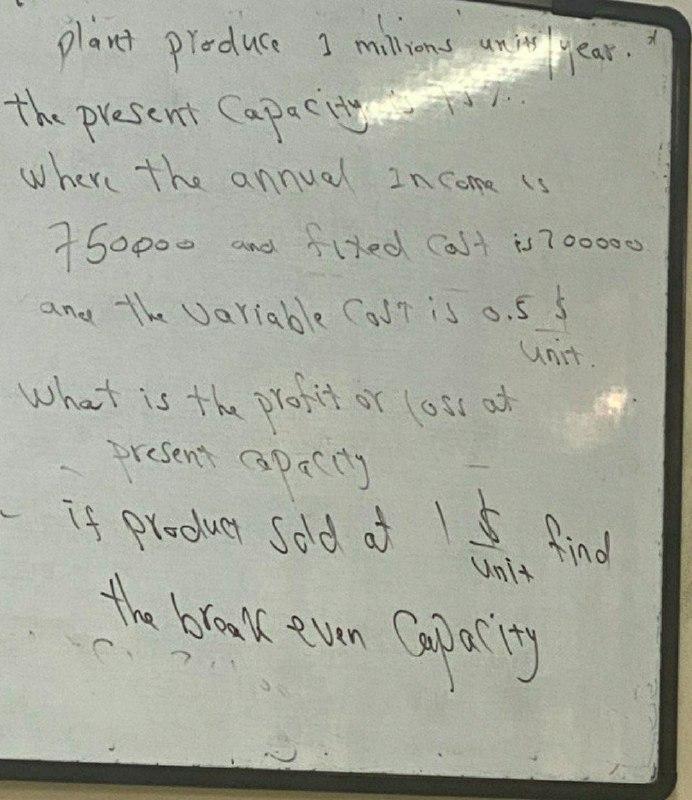 plant produce 1 millions units/year. *
the present Capacity
where the annual Income is
750000 and fixed Cost is 200000
and the variable Cost is 0.5 $/unit.
What is the profit or loss at
present capacity
- if product sold at 1 $/unit find
the break even Capacity